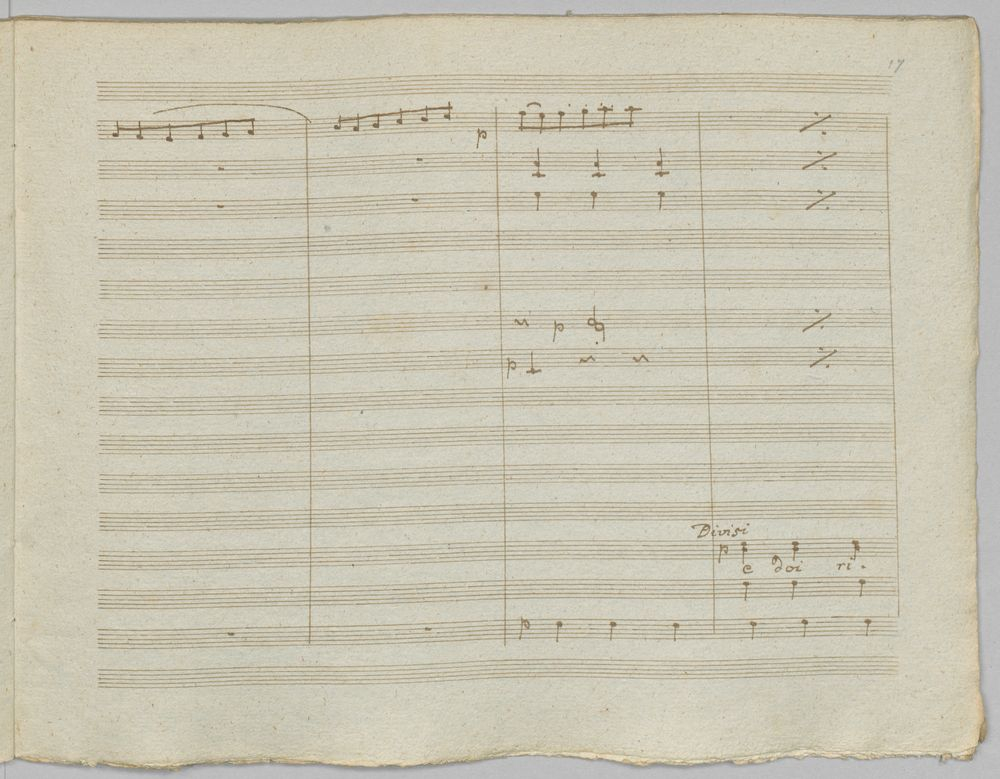 17
p
p
p
Divisi
p
e doi ri.
p